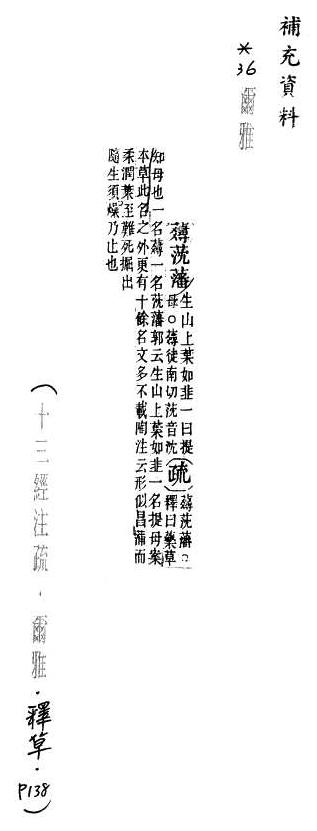 補充資料
*36 爾雅
蕁莐藩 生山上葉如韭一曰提
母○蕁徒南切莐音沈
(疏) 蕁莐藩○
釋曰藥草
知母也一名蕁一名莐藩郭云生山上葉如韭一名提母案
本草此名之外更有十餘名文多不載陶注云形似昌蒲而
柔潤葉至難死掘出
隨生須燥乃止也
(十三經注疏．爾雅．釋草．P138)